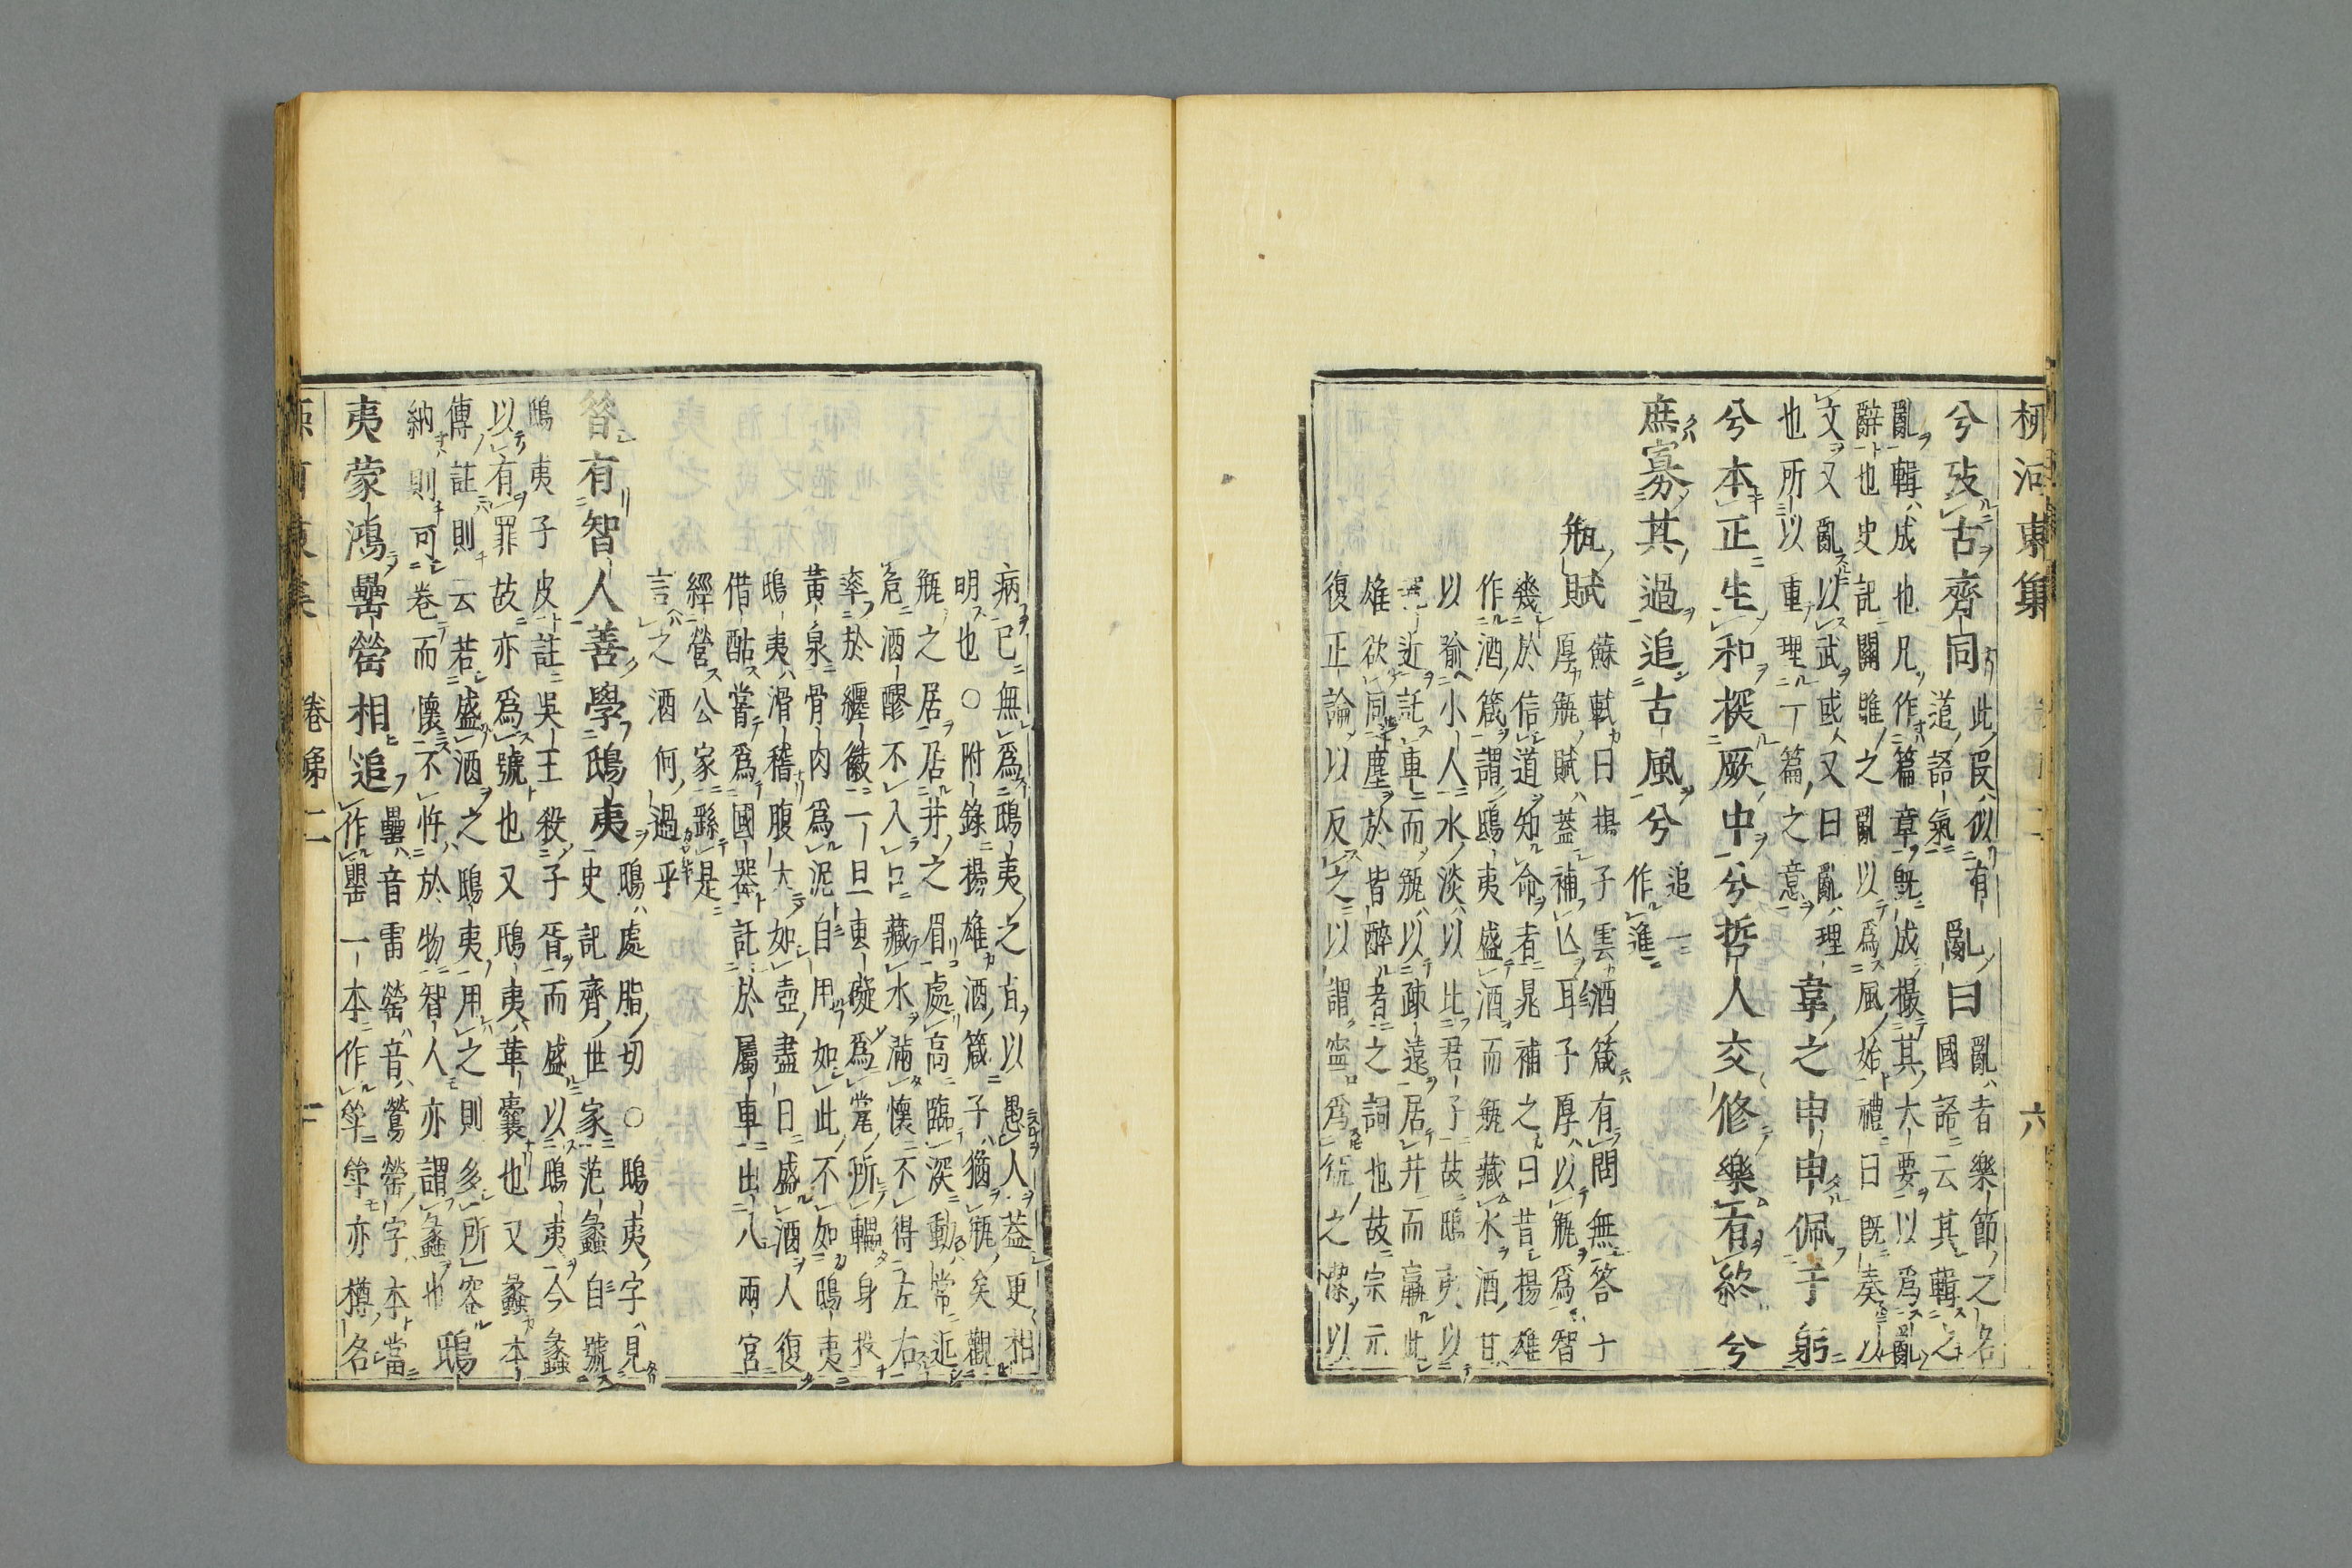 柳河東集 六
兮攷古齊同此段似有
道語氣亂曰亂者樂節之名
國語云其輯之
亂輯成也凡作篇章既成撮其大要以為亂
辭也史記關雎之亂以為風始禮曰既奏以
文又亂以武或又曰亂理
也所以重理一篇之意韋之申申佩于躬
兮本正生和探厥中兮哲人交修樂有終兮
庶寡其過追古風兮追一
作進
瓶賦
蘇軾曰揚子雲酒箴有問無答子
厚瓶賦蓋補亾耳子厚以瓶為智
幾於信道知命者晁補之曰昔揚雄
作酒箴謂鴟夷盛酒而瓶藏水酒甘
以喻小人水淡以比君子故鴟夷以
親近託車而瓶以疎遠居井而羸此
雄欲同塵於皆醉者之詞也故宗元
復正論以反之以謂寧為瓶之潔以
病己無為鴟夷之旨以愚人蓋更相
明也○附錄揚雄酒箴子猶瓶矣觀
瓶之居居井之眉處高臨深動常近
危酒醪不入口藏水滿懷不得左右
牽於纆徽一旦叀礙為瓽所轠身投
黃泉骨肉為泥自用如此不如鴟夷
鴟夷滑稽腹大如壺盡日盛酒人復
借酤嘗為國器託於屬車出入兩宮
經營公家繇是
言之酒何過乎
昔有智人善學鴟夷鴟處脂切○鴟夷字見
史記齊世家范蠡自號
鴟夷子皮註吳王殺子胥而盛以鴟夷今蠡
以有罪故亦為號也又鴟夷革囊也又蠡本
傳註則云若盛酒之鴟夷用之則多所容
納則可卷而懷不忤於物智人亦謂蠡也鴟
夷蒙鴻罍罃相追罍音雷罃音鶯罃字本當
作甖一本作亦樽名
河東集 卷第二